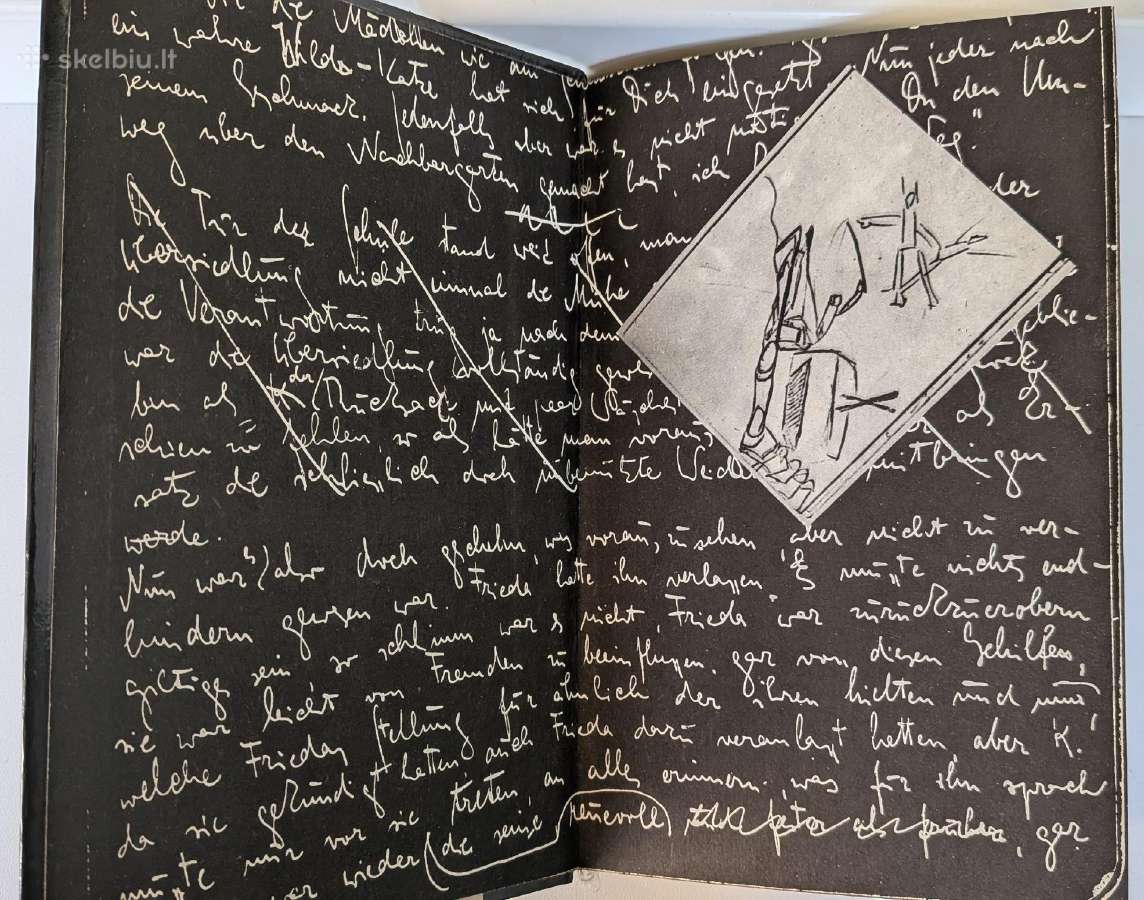 skelbiu.lt
die Mädchen wie
ein wahre Wilds-Katze hat sich für Dich eingesetzt. Nun jeder nach
seinem Geschmack. Jedenfalls aber war es nicht nötig Du den Um-
weg über den Nachbargarten gemacht hast, ich
Die Tür der Schule stand weit offen, man der
Übersiedlung nicht einmal die Mühe
die Verantwortung trug ja nach dem
war die Übersiedlung vollständig
ben als der Rucksack und paar Wäsche
schien zu fehlen, so als hätte man voraus als Er-
satz die schließlich doch unbenützte Weide mitbringen
werde.
Nun war's also doch geschehn, was vorauszusehen, aber nicht zu ver-
hindern gewesen war. Frieda hatte ihn verlassen. Es mußte nichts end-
giltiges sein, so schlimm war es nicht, Frieda war zurückzuerobern
sie war leicht von Fremden zu beeinflussen gar von diesen Gehilfen,
welche Friedas Stellung für ähnlich der ihren hielten und nun
da sie gekündigt hatten auch Frieda dazu veranlaßt hatten, aber K.
mußte nur vor sie treten, an alles erinnern was für ihn sprach
wieder (die seine reuevoll, gar